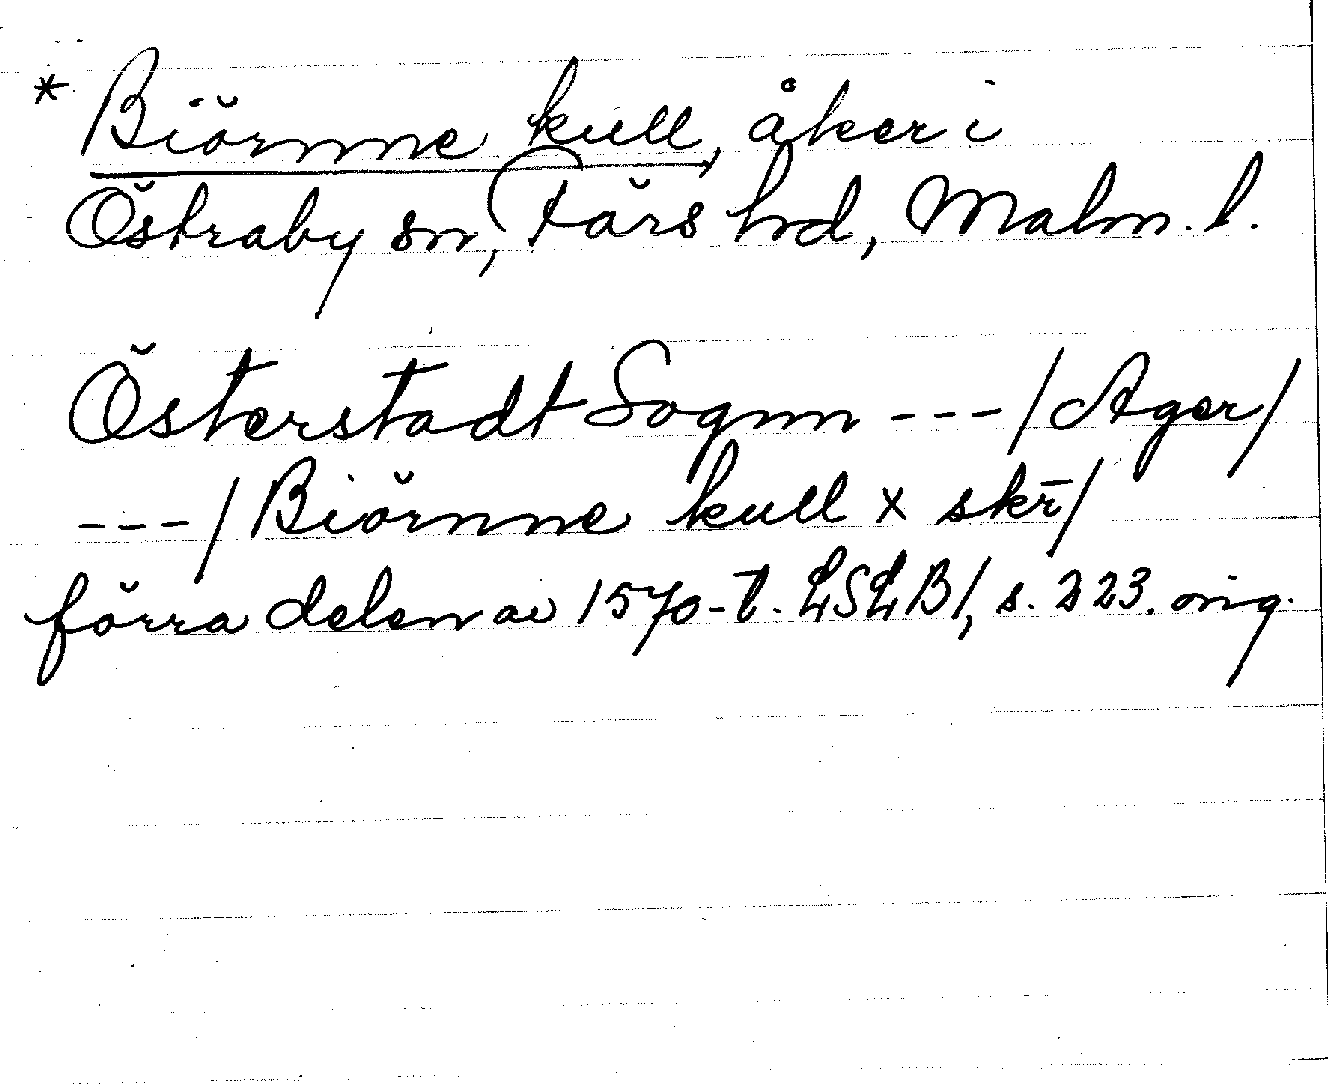 * Biörnne kull, åker i
Östraby sn, Färs hd, Malm. l.
Östterstadt Sognn --- / Ager /
--- / Biörnne kull x skr̄ /
förra delen av 1570-t. LSLB1, s. 223. orig.